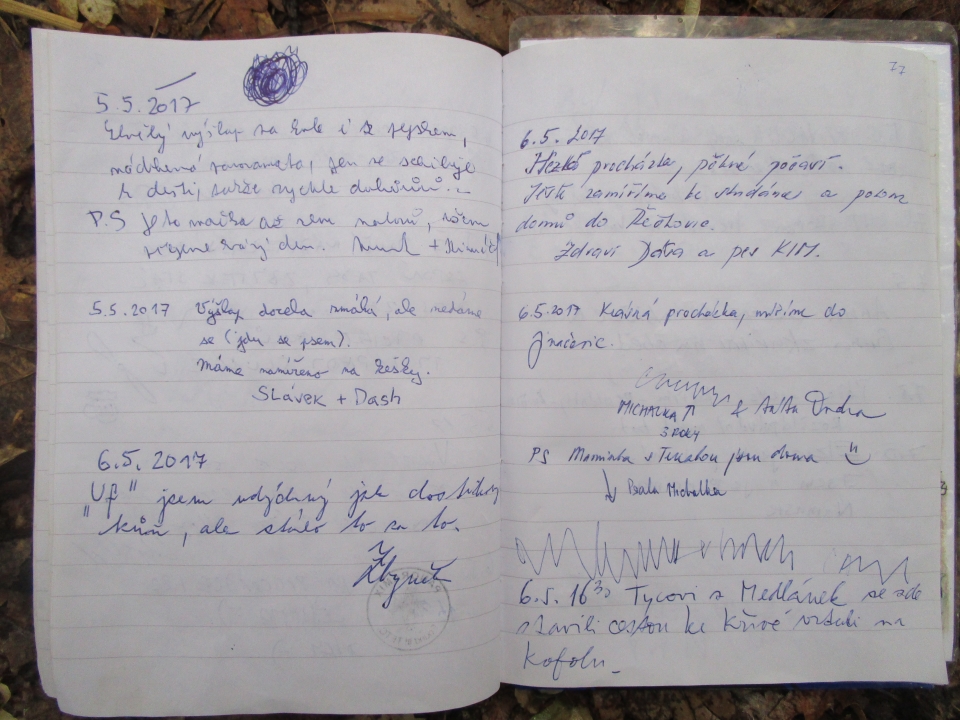 5.5.2017
výšlap na i se psem,
nádherná panoramata, jen se schyluje
k dešti, takže rychle dolůůůů...
P.S Je to mačka až sem nahoru,
den. +
5.5.2017 Výšlap docela zmáhá, ale nedáme
se (jdu se psem).
Máme namířeno na
Slávek + Dash
6.5.2017
"Uf" jsem udýchaný jak dostihový
kůň, ale stálo to za to.
Zbyněk
77
6.5.2017
Hezká procházka, pěkné počasí.
Ještě zamíříme ke studánce a potom
domů do Řečkovic.
Zdraví a pes KIM.
6.5.2017 Krásná procházka, míříme do
Jinačovic.
MICHALKA
3 ROKY
& táta Ondra
PS Maminka s jsou doma
Michalka
6.5. 16³⁰ Tycovi z Medlánek se zde
stavili cestou ke Křivé na
Kofolu_